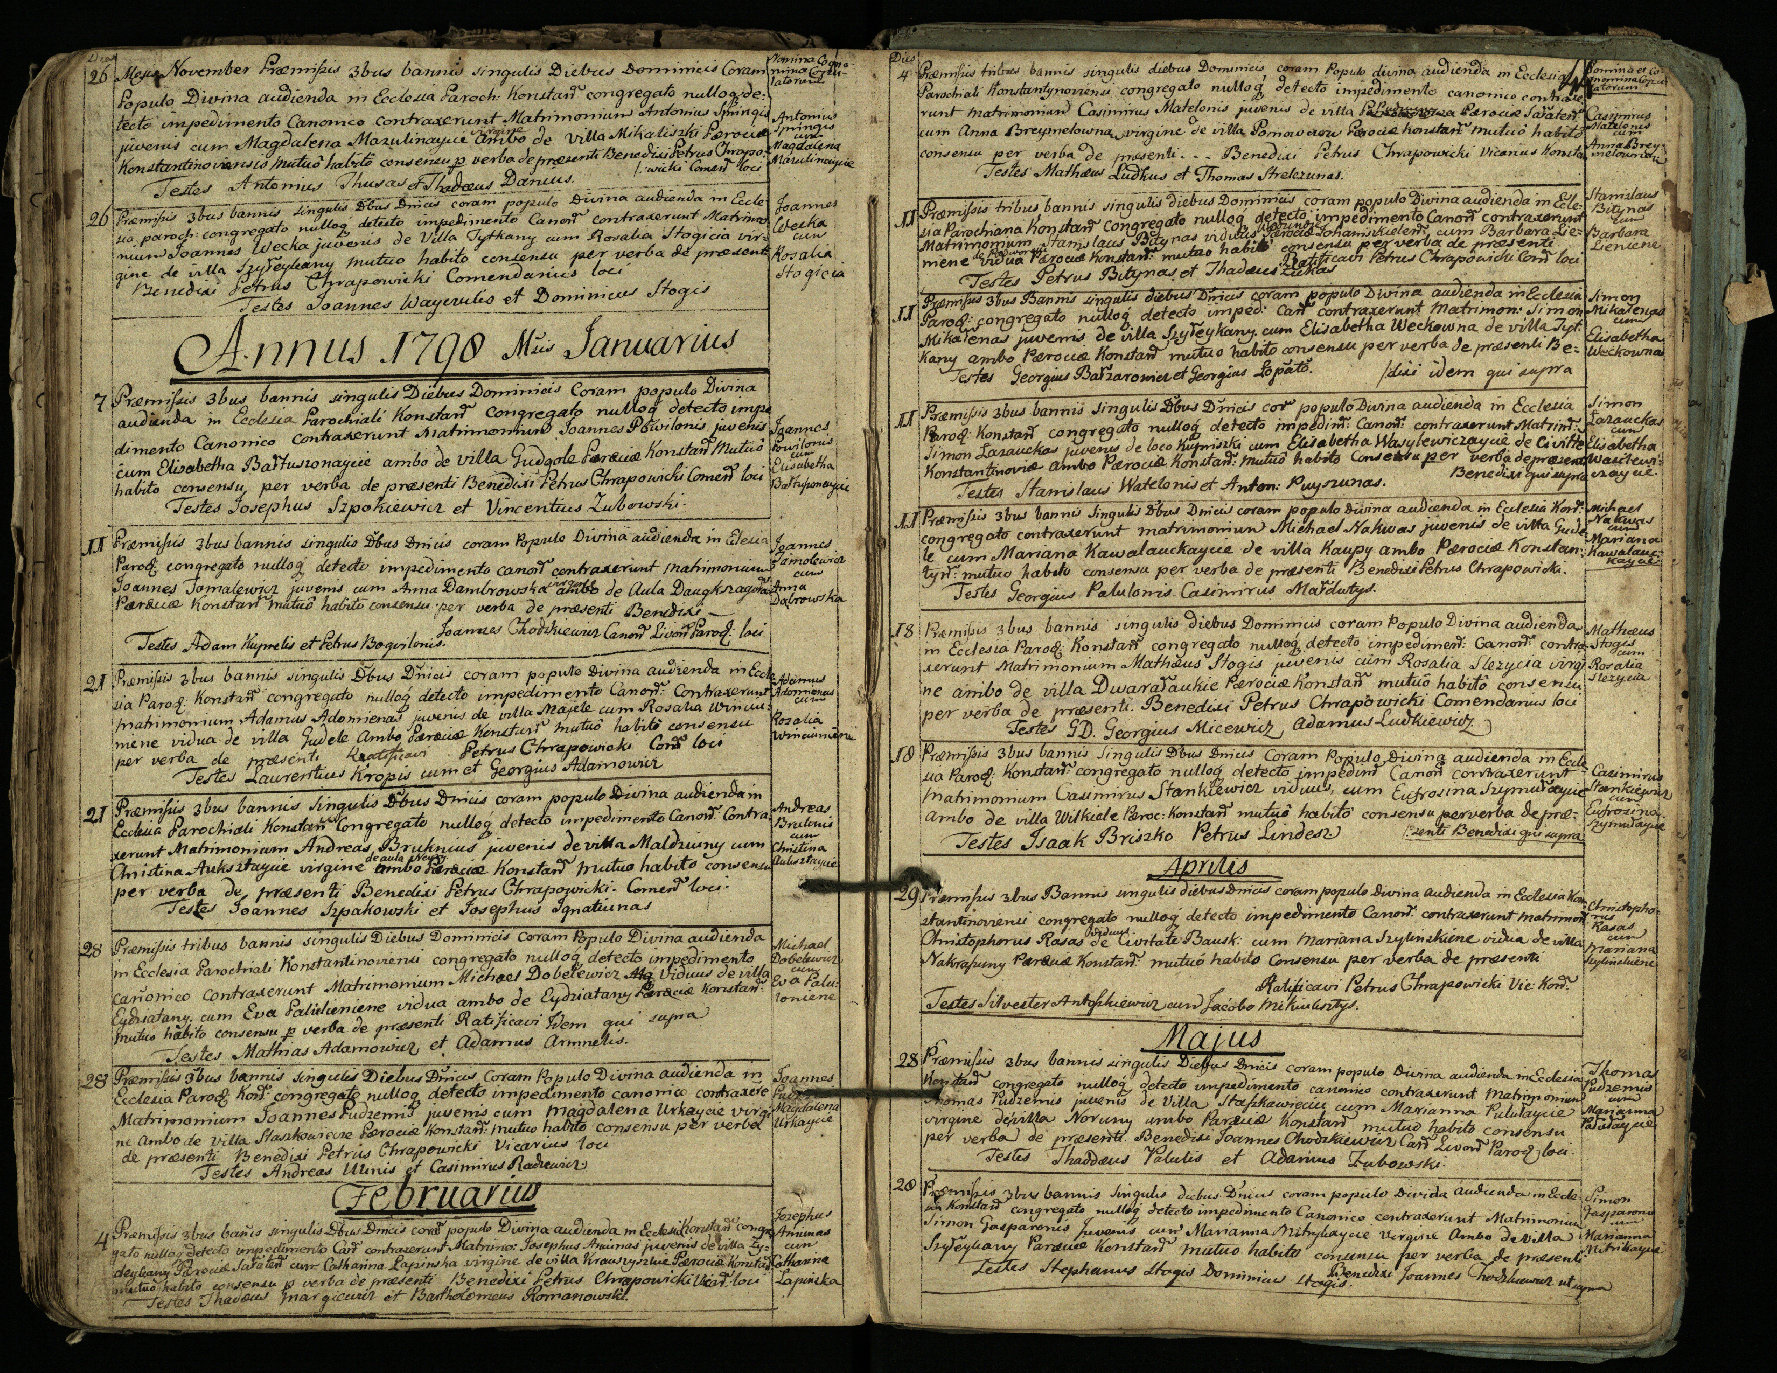 Dies
26 Mensis November Præmissis 3bus bannis singulis Diebus Dominicis Coram
Populo Divina audienda in Ecclesia Paroch: Konstan̄ congregato nulloq̢ de:
tecto impedimento Canonico contraxerunt Matrimonium Antonius Spningis
juvenis cum Magdalena Mazulinaycie virgine ambo de villa Mikaliszki Parociæ
Konstantinoviensis mutuô habitô consensu p verba de præsenti Benedixi Petrus Chrapo-
wicki Comen̄ loci
Testes Antonius Thusas et Thadæus Dancus.
Antonius
Spningis
cum
Magdalena
Mazulinaycie
26 Præmissis 3bus bannis singulis Dbus Dnicis coram populo Divina audienda in Eccle-
sia paroch: congregato nulloq̢ detecto impedimento Canon̄ contraxerunt Matrimo-
nium Joannes Wecka juvenis de Villa Tytkany cum Rosalia Stogicia vir-
gine de villa Szyłeykany mutuo habito consensu per verba de præsenti
Benedixi Petrus Chrapowicki Comendarius loci
Testes Joannes Wayczulis et Dominicus Stogis
Joannes
Wecka
cum
Rosalia
Stogicia
Annus 1798 Mſis Januarius
7 Præmissis 3bus bannis singulis Diebus Dominicis Coram populo Divina
audienda in Ecclesia Parochiali Konstan̄ Congregato nulloq̢ detecto impe
dimento Canonico contraxerunt Matrimonium Joannes Powilonis juvenis
cum Elisabetha Bartuszonaycie ambo de villa Gudgole Parociæ Konstan̄ Mutuô
habito consensu per verba de præsenti Benedixi Petrus Chrapowicki Comen̄ loci
Testes Josephus Szpokiewicz et Vincentius Zubowski.
Joannes
Powilonis
cum
Elisabetha
Bartuszonaycie
11 Præmissis 3bus bannis singulis Dbus Dnicis coram Populo Divina audienda in Eclesia
Paroq̢ congregato nulloq̢ detecto impedimento canon̄ contraxerunt matrimonium
Joannes Tomalewicz juvenis cum Anna Dambrowska virgine ambo de Aula Daugkszagola
Parociæ Konstan̄ mutuô habito consensu per verba de præsenti Benedixi
Joannes Chodzkiewicz Canon̄ Livon̄ Paroq̢ loci
Testes Adam Kuprelis et Petrus Bogwilonis.
Joannes
Tamolewicz
cum
Anna
Dabrowska
21 Præmissis 3bus bannis singulis Dbus Dnicis coram populo Divina audienda in Eccle
sia Paroq̢ Konstan̄ congregato nulloq̢ detecto impedimento Canon̄: Contraxerunt
matrimonium Adamus Adomenas juvenis de villa Majele cum Rosalia Winciu:
mene vidua de villa Gudele Ambo Parociæ Konstan̄ mutuô habitô consensu
per verba de præsenti Ratificavi Petrus Chrapowicki Com̄ loci
Testes Laurentius Kropis cum et Georgius Adamowicz
Adamus
Adomenas
cum
Rosalia
Winciumene
21 Præmissis 3bus bannis Singulis Dbus Dnicis coram populo Divina audienda in
Ecclesia Parochiali Konstan̄ congregato nulloq̢ detecto impedimento Canon̄ Contra:
xerunt Matrimonium Andreas Bruknius juvenis de villa Maldziuny cum
Christina Auksztaycie virgine ambo Parociæ Konstan̄ mutuo habito consensu
per verba de præsenti Benedixi Petrus Chrapowicki Comen̄ loci.
Testes Joannes Szpakowski et Josephus Ignatiunas
Andreas
Brulonis
cum
Christina
Auksztaycie
28 Præmissis tribus bannis singulis Diebus Dominicis Coram Populo Divina audienda
in Ecclesia Parochiali Konstantinoviensi congregato nulloq̢ detecto impedimento
canonico contraxerunt Matrimonium Michael Dobelewicz Viduus de villa
Eydziatany cum Eva Palulieniene vidua ambo de Eydziatany Parociæ Konstan̄:
mutuo habito consensu p verba de præsenti Ratificavi Idem qui supra
Testes Mathias Adamowicz et Adamus Armnelis.
Michael
Dobelewicz
cum
Eva Palu-
loniene
28 Præmissis 3bus bannis singulis Diebus Dnicis Coram Populo Divina audienda in
Ecclesia Paroq̢ Kon̄: congregato nulloq̢ detecto impedimento canonico contraxere
Matrimonium Joannes Pudzemis juvenis cum Magdalena Urkaycie virgi
ne Ambo de villa Staszkowicze Parociæ Konstan̄: mutuo habito consensu per verba
de præsenti Benedixi Petrus Chrapowicki Vicarius loci
Testes Andreas Ulinis et Casimirus Radzewicz
Joannes
Pudz
Magdalena
Urkaycie
Februarius
4 Præmissis 3bus bannis singulis Dbus Dnicis coram populo Divina audienda in Ecclesia Konstan̄ congre
gato nulloq̢ detecto impedimento Can̄ contraxerunt Matrimo: Josephus Aniunas juvenis de villa Zy-
deykany Parociæ Sałaten̄ cum Catharina Lapinska virgine de villa Krawzyszkie Parociæ Konstan̄
mutuô habito consensu p verba de præsenti Benedixi Petrus Chrapowicki Vicar̄ loci
Testes Thadæus Margiewicz et Bartholomeus Romanowski.
Josephus
Aniunas
cum
Catharina
Lapinska
Dies
4 Præmissis tribus bannis singulis diebus Dominicis coram Populo divina audienda in Ecclesia
Parochiali Konstantynoviensi congregato nulloq̢ detecto impedimento canonico contraxe
runt matrimonium Casimirus Matelonis juvenis de villa Parociæ Sałaten̄
cum Anna Breymelowna virgine de villa Ponawciow Parociæ Konstan̄ mutuô habitô
consensu per verba de præsenti - - - Benedixi Petrus Chrapowicki Vicarius Konstan̄
Testes Mathæus Ludkus et Thomas Strelczunas.
Casimirus
Matelonis
cum
Anna Brey-
melowna
11 Præmissis tribus bannis singulis diebus Dominicis coram populo Divina audienda in Eccle-
sia Parochiana Konstan̄ congregato nulloq̢ detecto impedimento Canon̄ contraxerunt
Matrimonium Stanislaus Bitynas viduus Parociæ Johaniszkielen̄ cum Barbara Lie-
niene vidua Parociæ Konstan̄: mutuo habito consensu per verba de præsenti
Ratificavi Petrus Chrapowicki Com̄ loci
Testes Petrus Bitynas et Thadæus Zukas
Stanislaus
Bitynas
cum
Barbara
Lieniene
11 Præmissis 3bus Bannis singulis diebus Dnicis coram populo Divina audienda in Ecclesia
Paroq̢: congregato nulloq̢ detecto imped: Can̄ contraxerunt Matrimon: Simon
Mikalenas juvenis de villa Szyłeykany cum Elisabetha Weckowna de villa Tyt-
kany ambo Parociæ Konstan̄ mutuo habito consensu per verba de præsenti Be=
dixi idem qui supra
Testes Georgius Bartzarowicz et Georgius Lopato.
Simon
Mikalenas
cum
Elisabetha
Weckowna
11 Præmissis 3bus bannis singulis Dbus Dnicis cor̄ populo Divina audienda in Ecclesia
Paroq̢ Konstan̄ congregato nulloq̢ detecto impedim̄: Canon̄: contraxerunt Matrim̄:
Simon Lazauckas juvenis de loco Kupniszki cum Elisabetha Wasylewiczaycie de Civitte
Konstantinoviæ ambo Parociæ Konstan̄: mutuô habito Consensu per verba de præsenti
Benedixi qui supra
Testes Stanislaus Watelonis et Anton: Puyszunas.
Simon
Lazauckas
cum
Elisabetha
Wasilewi-
czaycie.
11 Præmissis 3bus bannis singulis Dbus Dnicis coram populo Divina audienda in Ecclesia Kon̄:
congregato contraxerunt matrimonium Michael Nakwas juvenis de villa Gude
le cum Mariana Kawalauckaycie de villa Kaupy ambo Parociæ Konstan:
tyn̄: mutuo habito consensu per verba de præsenti Benedixi Petrus Chrapowicki.
Testes Georgius Palulonis Casimirus Mardutys.
Michael
Nakwas
cum
Mariana
Kawalauc-
kaycie
18 Præmissis 3bus bannis singulis diebus Dominicis coram Populo Divina audienda
in Ecclesia Paroq̢ Konstan̄ congregato nulloq̢ detecto impediment: Canon̄: contra-
xerunt Matrimonium Mathæus Stogis juvenis cum Rosalia Slezycia virgi
ne ambo de villa Dwarałaukie Parociæ Konstan̄ mutuô habitô consensu
per verba de præsenti. Benedixi Petrus Chrapowicki Comendarius loci
Testes GD. Georgius Micewicz Adamus Ludkiewicz
Mathæus
Stogis
cum
Rosalia
Slezycia
18 Præmissis 3bus bannis singulis Dbus Dnicis Coram Populo Divina audienda in Eccle
sia Paroq̢ Konstan̄: congregato nulloq̢ detecto impedim̄ Canon̄ contraxerunt
matrimonium Casimirus Stankiewicz viduus, cum Eufrosina Szymułaycie
Ambo de villa Wilkiele Paroc: Konstan̄ mutuô habitô consensu per verba de præ-
senti Benedixi qui supra
Testes Isaak Briszko Petrus Lindesz
Casimirus
Stankiewicz
cum
Eufrosina
Szymułaycie
Aprilis
29 Præmissis 3bus Bannis singulis diebus Dnicis coram populo Divina audienda in Ecclesia Kon
stantinoviensi congregato nulloq̢ detecto impedimento Canon̄: contraxerunt matrimon̄
Christophorus Rasas viduus de Civitate Bausk: cum Mariana Szylinskiene vidua de villa
Nakrasuny Parociæ Konstan̄: mutuô habito Consensu per verba de præsenti
Ratificavi Petrus Chrapowicki Vic: Kon̄:
Testes Silvester Antoszkiewicz cum Jacobo Mikulisztys.
Christopho-
rus
Rasas
cum
Mariana
Szylinskiene
Majus
28 Præmissis 3bus bannis singulis Diebus Dnicis coram populo Divina audienda in Ecclesia
Konstan̄ congregato nulloq̢ detecto impedimento canonico contraxerunt Matrimonium
Thomas Pudzemis juvenis de Villa Staszkowiciu cum Marianna Palułaycie
virgine de villa Noruny ambo Parociæ Konstan̄ mutuo habito consensu
per verba de præsenti Benedixi Joannes Chodzkiewicz Can̄ Livon̄ Paroq̢ loci.
Testes Thaddæus Palulis et Adamus Zubowski.
Thomas
Pudzemis
cum
Marianna
Palułaycie
28 Præmissis 3bus bannis singulis diebus Dnicis coram populo Divida audienda in Eccle-
sia Konstan̄ congregato nulloq̢ detecto impedimento Canonico contraxerunt Matrimonium
Simon Gasparonis juvenis cum Marianna Mitrykaycie Virgine Ambo de villa
Szyłeykany Parociæ Konstan̄ mutuo habito consensu per verba de præsenti
Benedixi Joannes Chodzkiewicz ut supra
Testes Stephanus Stogis Dominicus Stogis.
Simon
Gasparonis
cum
Marianna
Mitrikaycie